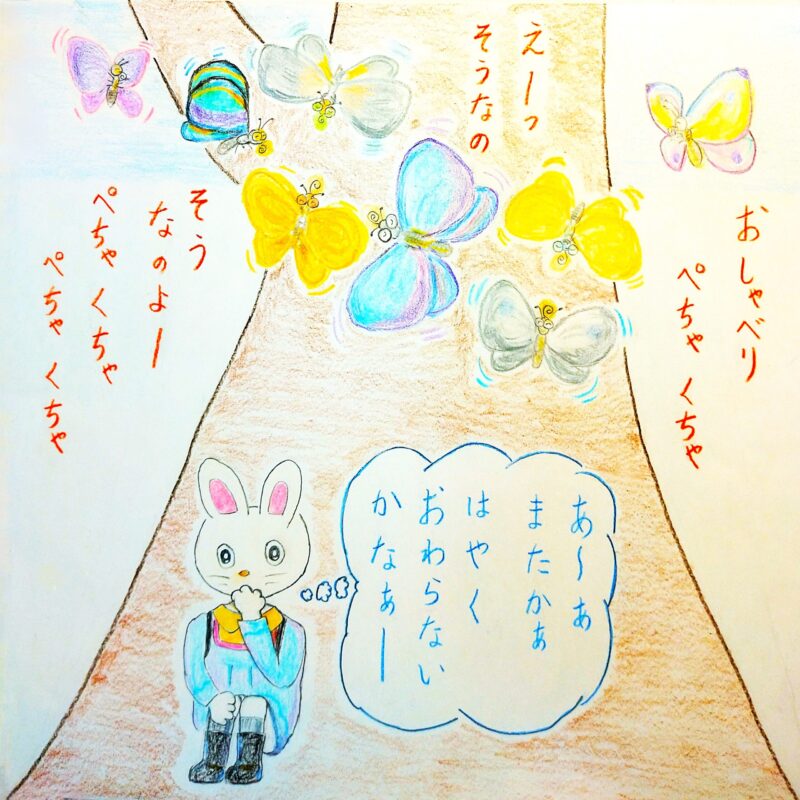 えーっ
そうなの
おしゃべり
ぺちゃくちゃ
そう
なのよー
ぺちゃくちゃ
ぺちゃくちゃ
あ〜ぁ
またかぁ
はやく
おわらない
かなぁー